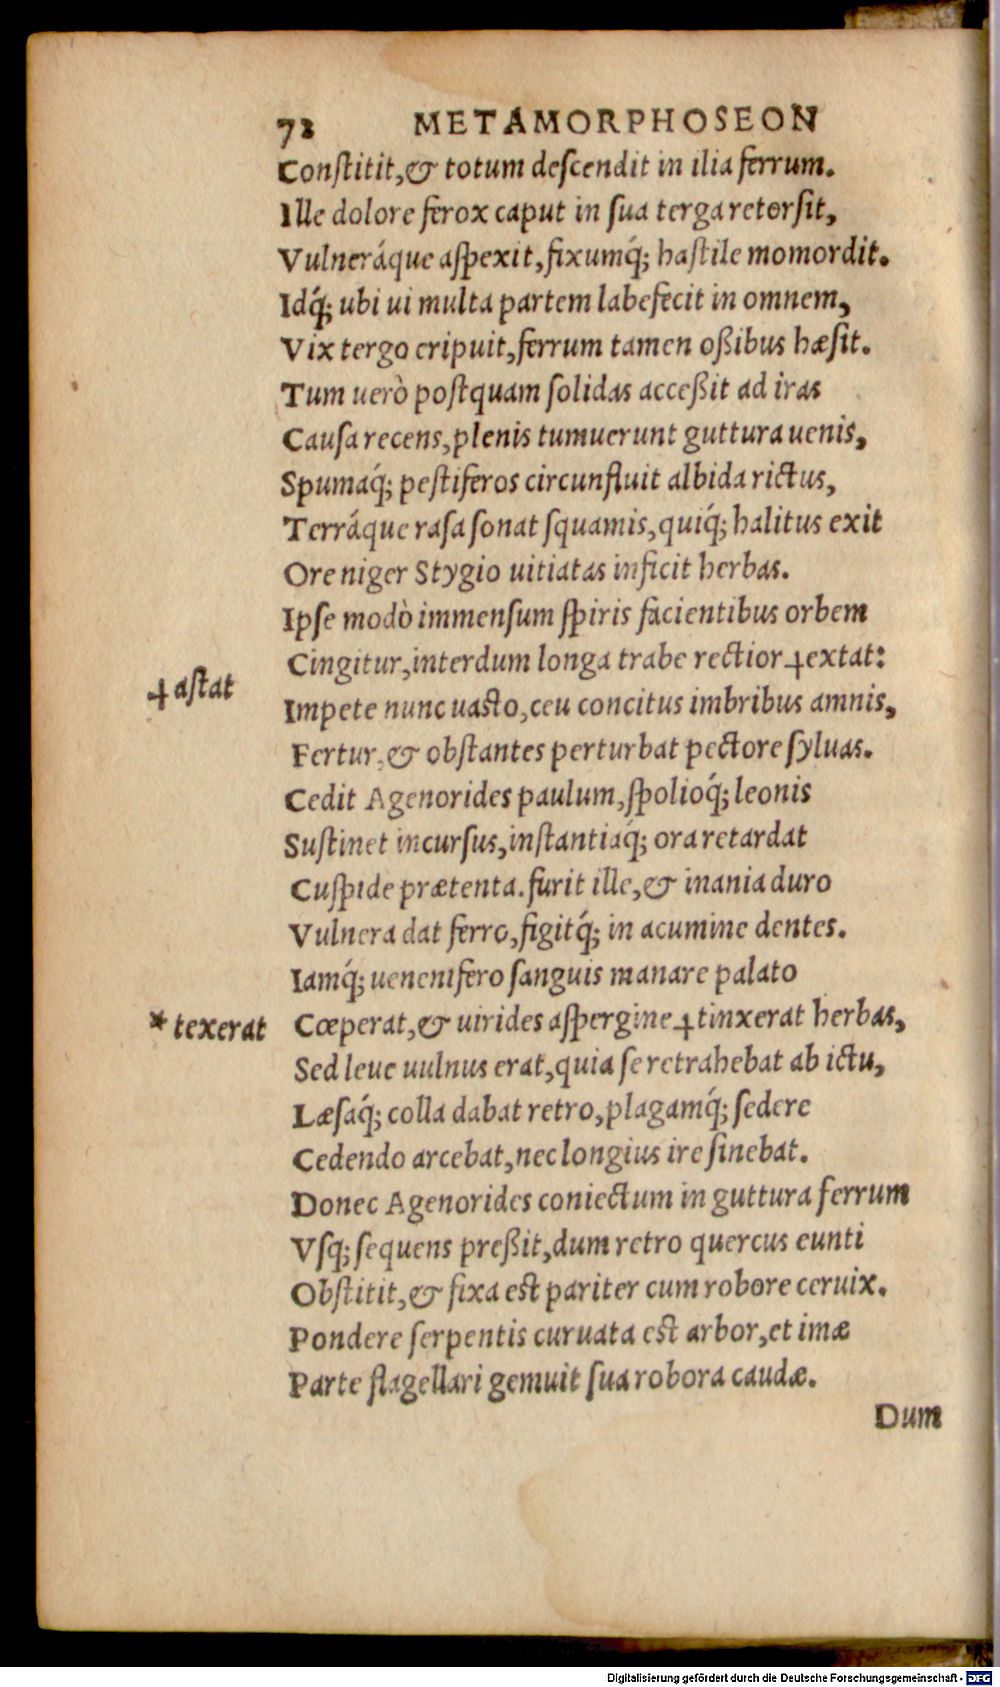 72 METAMORPHOSEON
Conſtitit,& totum deſcendit in ilia ferrum.
Ille dolore ferox caput in ſua terga retorſit,
Vulneráque aſpexit,fixumq́; haſtile momordit.
Idq́; ubi ui multa partem labefecit in omnem,
Vix tergo eripuit,ferrum tamen oßibus hæſit.
Tum uerò poſtquam ſolidas acceßit ad iras
Cauſa recens,plenis tumuerunt guttura uenis,
Spumaq́; peſtiferos circunfluit albida rictus,
Terráque raſa ſonat ſquamis,quiq́; halitus exit
Ore niger Stygio uitiatas inficit herbas.
Ipſe modò immenſum ſpiris facientibus orbem
Cingitur,interdum longa trabe rectior ⸸extat:
⸸ aſtat
Impete nunc uasto,ceu concitus imbribus amnis,
Fertur,& obſtantes perturbat pectore ſyluas.
Cedit Agenorides paulum,ſpolioq́; leonis
Suſtinet incurſus,inſtantiaq́; ora retardat
Cuſpide prætenta. furit ille,& inania duro
Vulnera dat ferro,figitq́; in acumine dentes.
Iamq́; uenenifero ſanguis manare palato
* texerat Cœperat,& uirides aſpergine ⸸tinxerat herbas,
Sed leue uulnus erat,quia ſe retrahebat ab ictu,
Læſaq́; colla dabat retro,plagamq́; ſedere
Cedendo arcebat,nec longius ire ſinebat.
Donec Agenorides coniectum in guttura ferrum
Vſq; ſequens preßit,dum retro quercus eunti
Obſtitit,& fixa est pariter cum robore ceruix.
Pondere ſerpentis curuata est arbor,et imæ
Parte flagellari gemuit ſua robora caudæ.
Dum
Digitalisierung gefördert durch die Deutsche Forschungsgemeinschaft - DFG